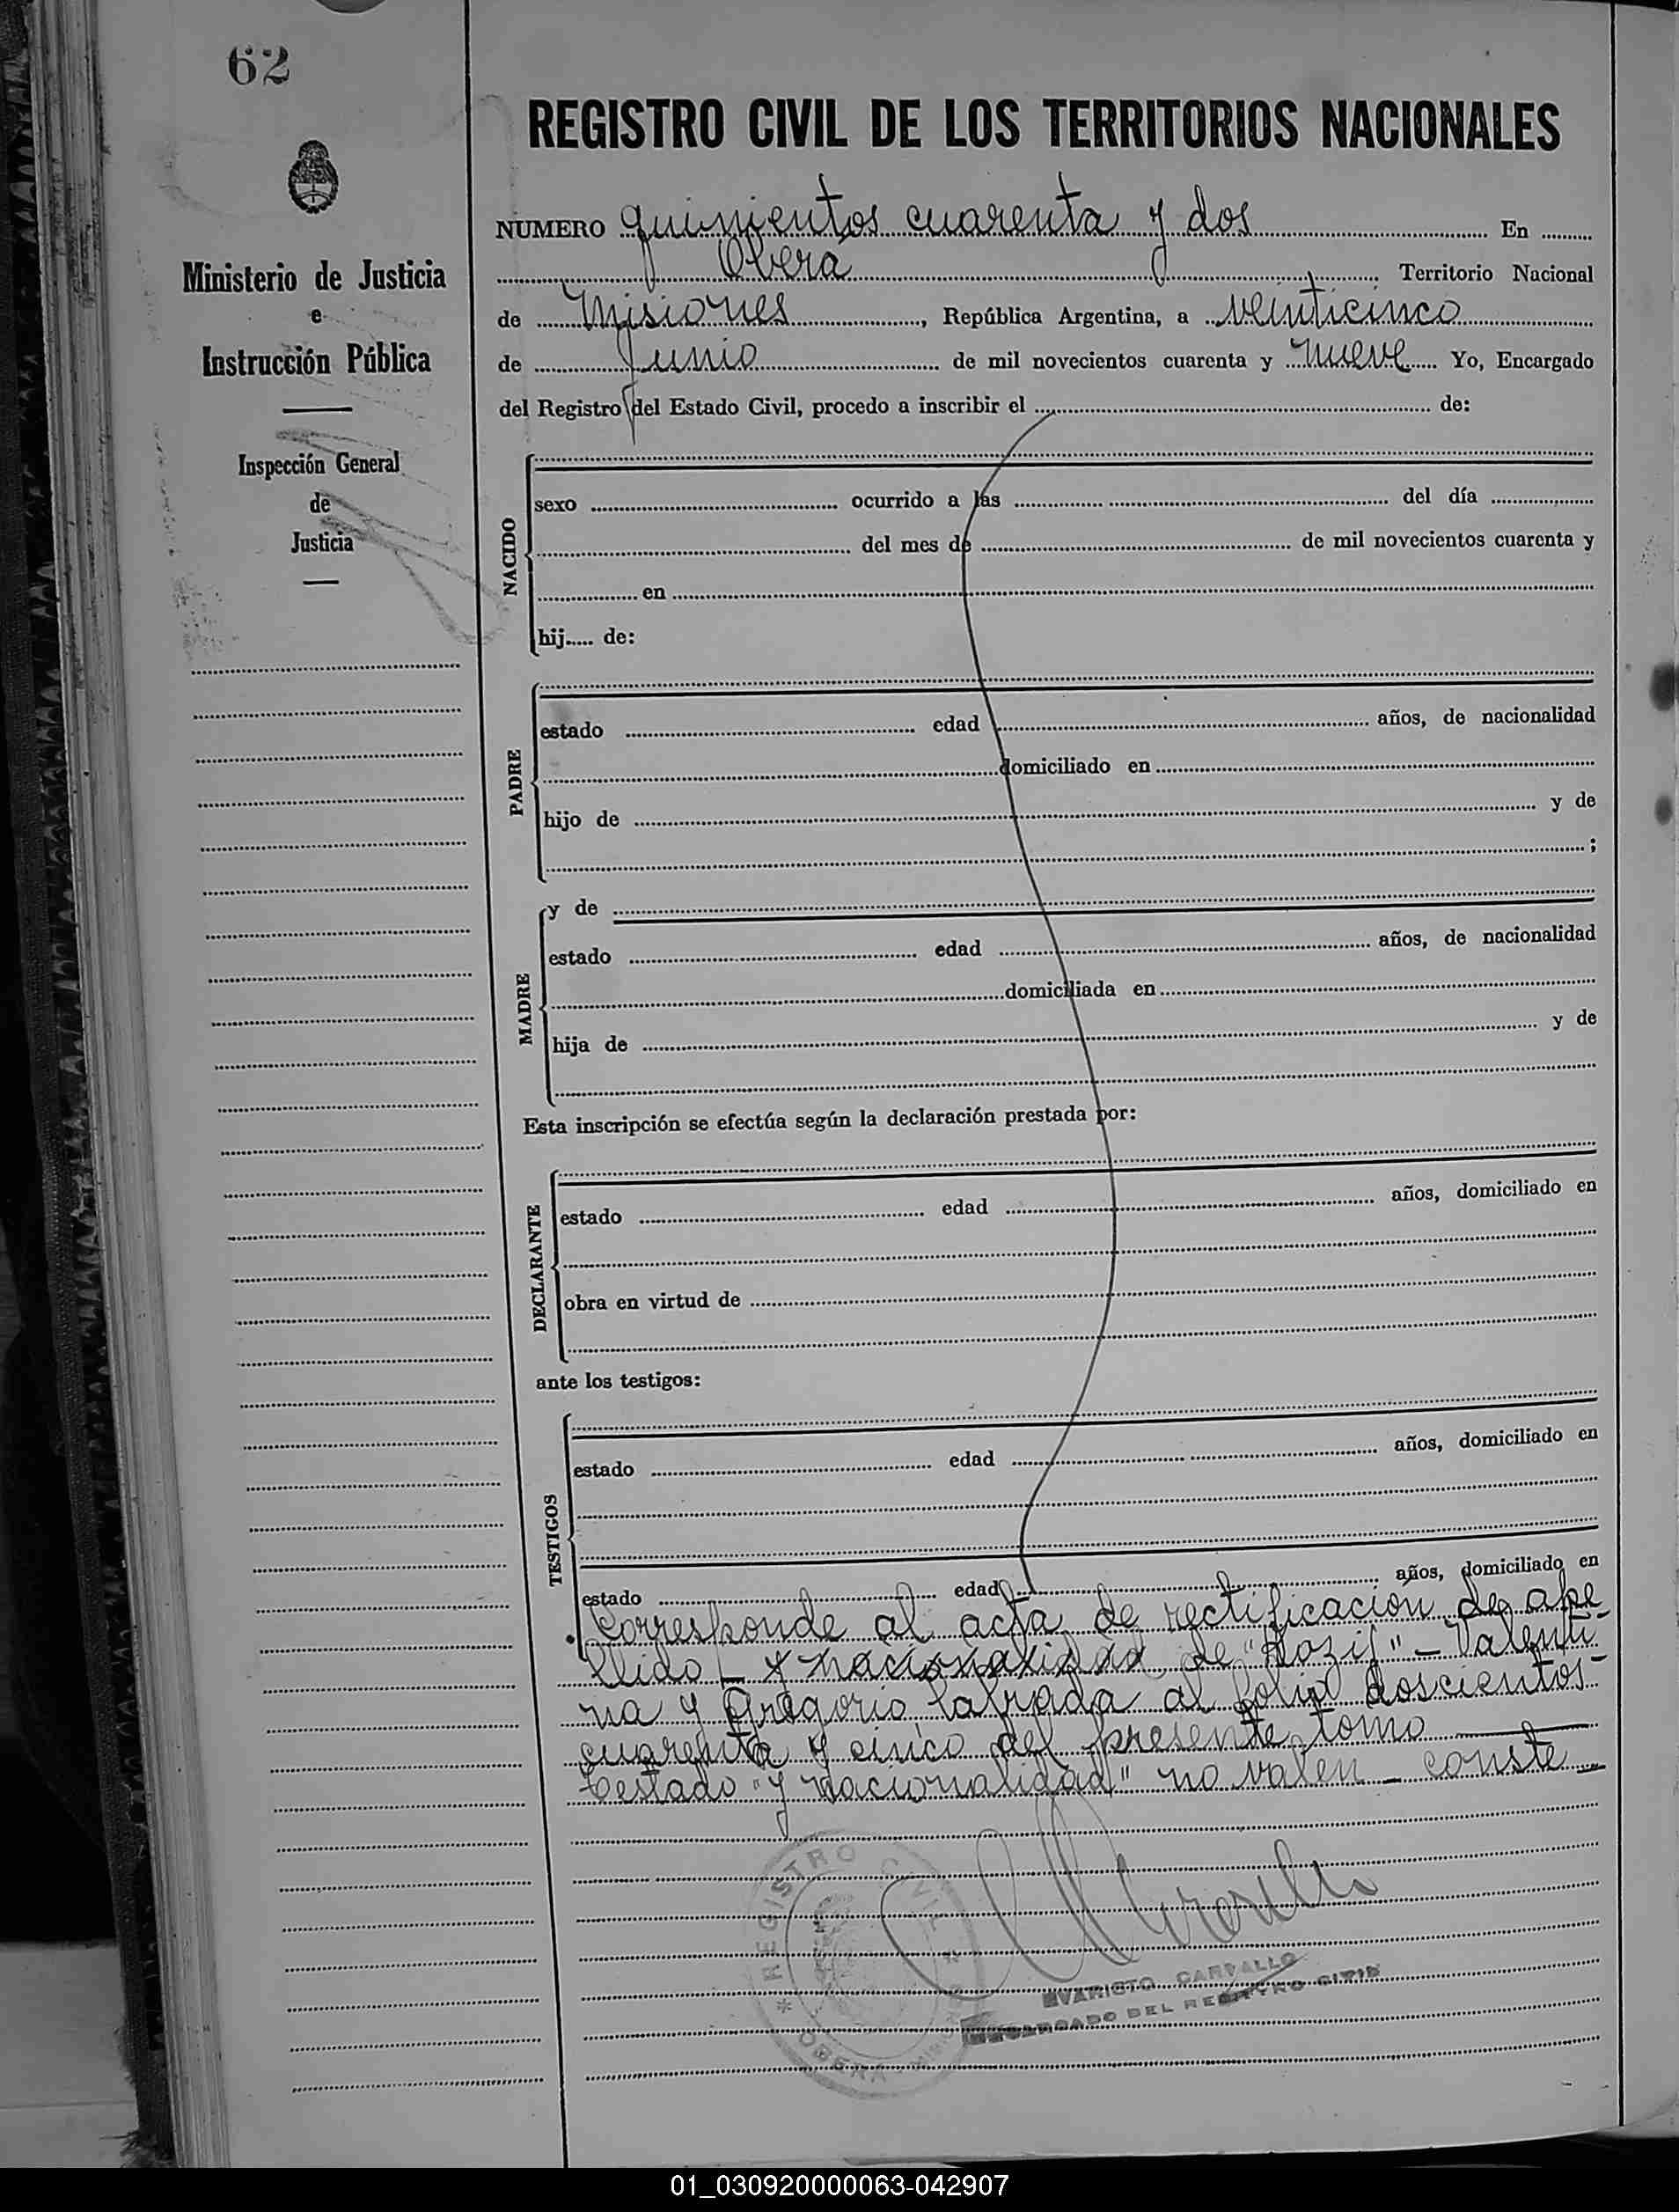 62
REGISTRO CIVIL DE LOS TERRITORIOS NACIONALES
Ministerio de Justicia
e
Instrucción Pública
Inspección General
de
Justicia
NUMERO quinientos cuarenta y dos En
Oberá Territorio Nacional
de Misiones, República Argentina, a veinticinco
de Junio de mil novecientos cuarenta y nueve Yo, Encargado
del Registro del Estado Civil, procedo a inscribir el de:
NACIDO
sexo ocurrido a las del día
del mes de de mil novecientos cuarenta y
en
hij..... de:
PADRE
estado edad años, de nacionalidad
domiciliado en
hijo de y de
;
MADRE
y de
estado edad años, de nacionalidad
domiciliada en
hija de y de
Esta inscripción se efectúa según la declaración prestada por:
DECLARANTE
estado edad años, domiciliado en
obra en virtud de
ante los testigos:
TESTIGOS
estado edad años, domiciliado en
estado edad años, domiciliado en
Corresponde al acta de rectificacion de ape
llido - y nacionalidad de - Valenti-
na y Gregorio, labrada al folio doscientos-
cuarenta y cinco del presente tomo
testado "y nacionalidad" no valen - conste
REGISTRO CIVIL
OBERÁ
EVARISTO CARVALLO
ENCARGADO DEL REGISTRO CIVIL
01_030920000063-042907